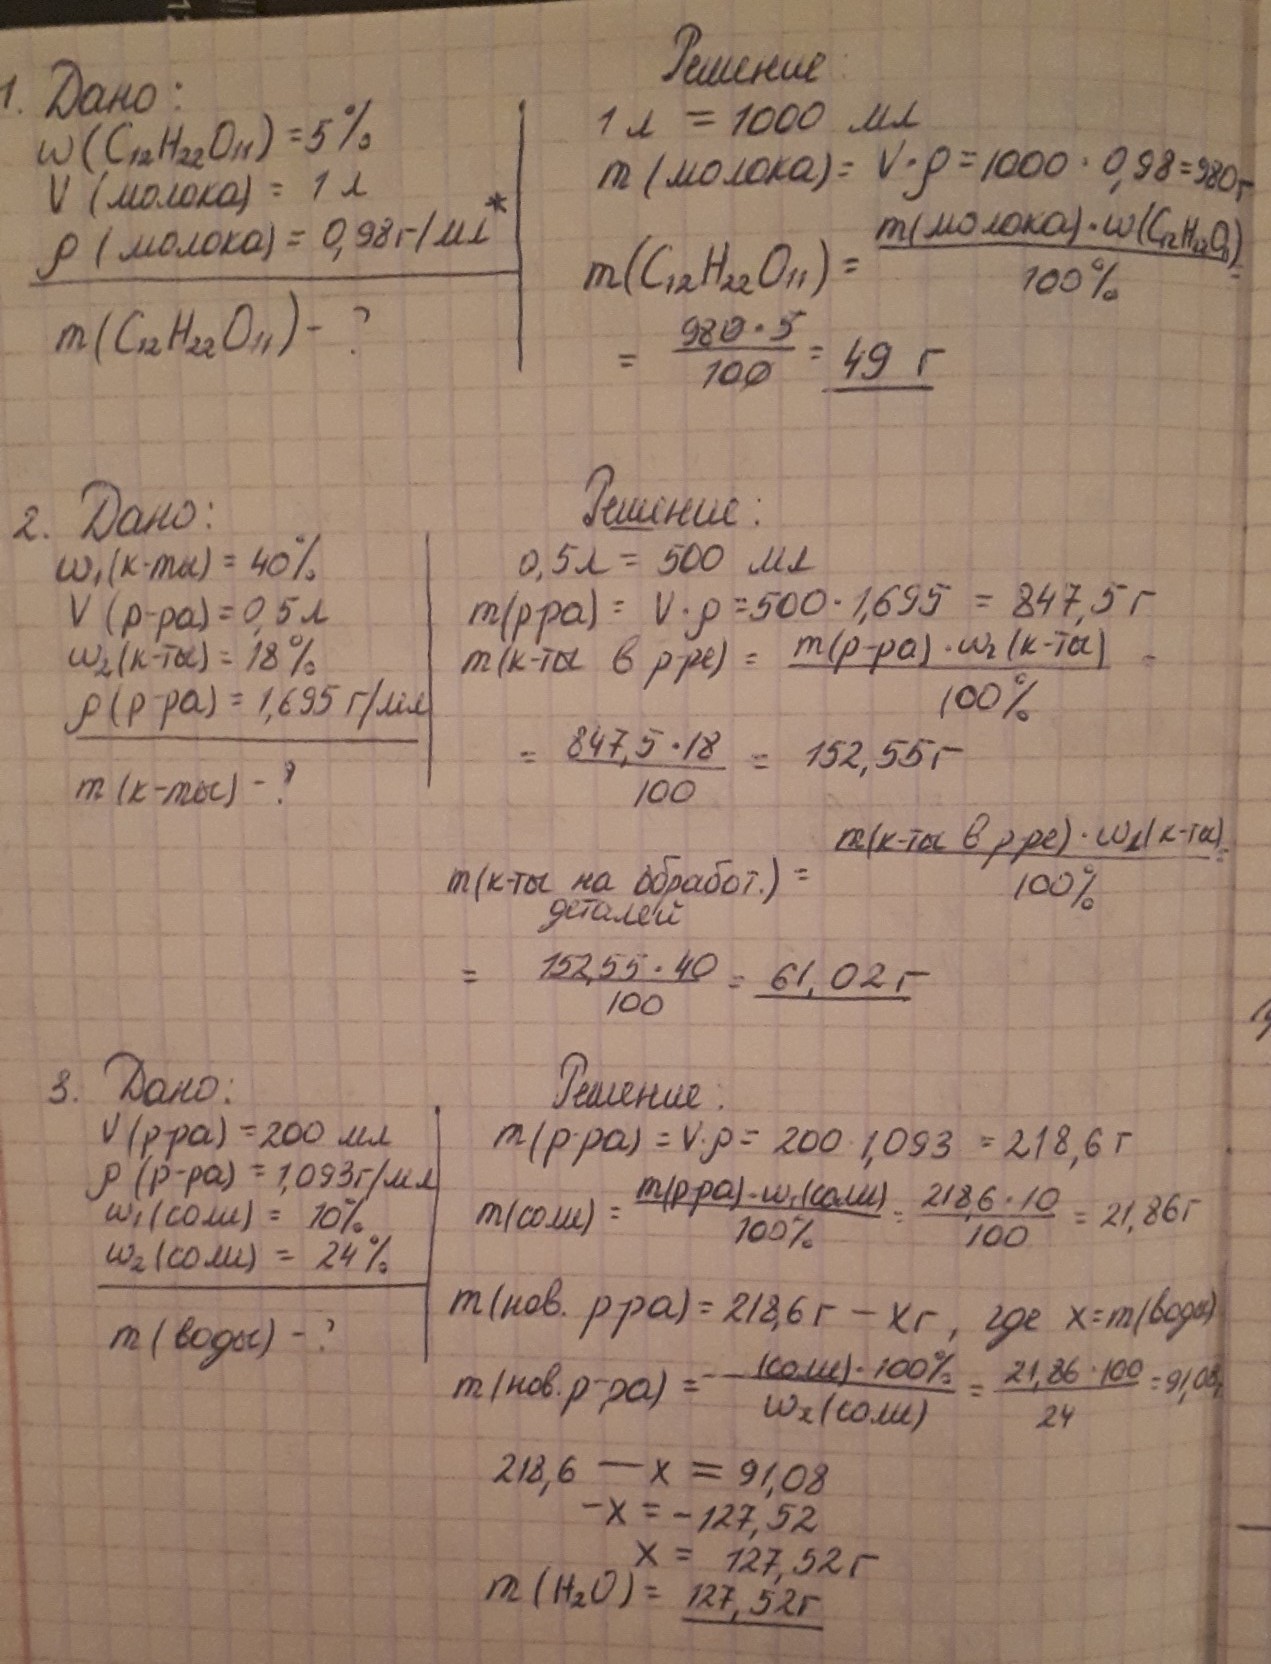 1. Дано:
ω(C₁₂H₂₂O₁₁) = 5%
V (молока) = 1 л
ρ (молока) = 0,98г/мл*
m(C₁₂H₂₂O₁₁) - ?
Решение:
1 л = 1000 мл
m (молока) = V·ρ = 1000 · 0,98 = 980г
m(C₁₂H₂₂O₁₁) = m(молока)·ω(C₁₂H₂₂O₁₁) / 100% =
= 980·5 / 100 = 49 г
2. Дано:
ω₁(к-ты) = 40%
V (р-ра) = 0,5л
ω₂(к-ты) = 18%
ρ (р-ра) = 1,695 г/мл
m (к-ты) - ?
Решение:
0,5л = 500 мл
m(р-ра) = V·ρ = 500·1,695 = 847,5 г
m(к-ты в р-ре) = m(р-ра)·ω₂(к-ты) / 100% =
= 847,5·18 / 100 = 152,55г
m(к-ты на обработ. деталей) = m(к-ты в р-ре)·ω₁(к-ты) / 100% =
= 152,55·40 / 100 = 61,02 г
3. Дано:
V (р-ра) = 200 мл
ρ (р-ра) = 1,093г/мл
ω₁(соли) = 10%
ω₂(соли) = 24%
m (воды) - ?
Решение:
m(р-ра) = V·ρ = 200·1,093 = 218,6 г
m(соли) = m(р-ра)·ω₁(соли) / 100% = 218,6·10 / 100 = 21,86г
m(нов. р-ра) = 218,6 г – х г, где х = m(воды)
m(нов. р-ра) = (соли)·100% / ω₂(соли) = 21,86·100 / 24 = 91,08
218,6 – х = 91,08
-х = -127,52
х = 127,52 г
m (H₂O) = 127,52г